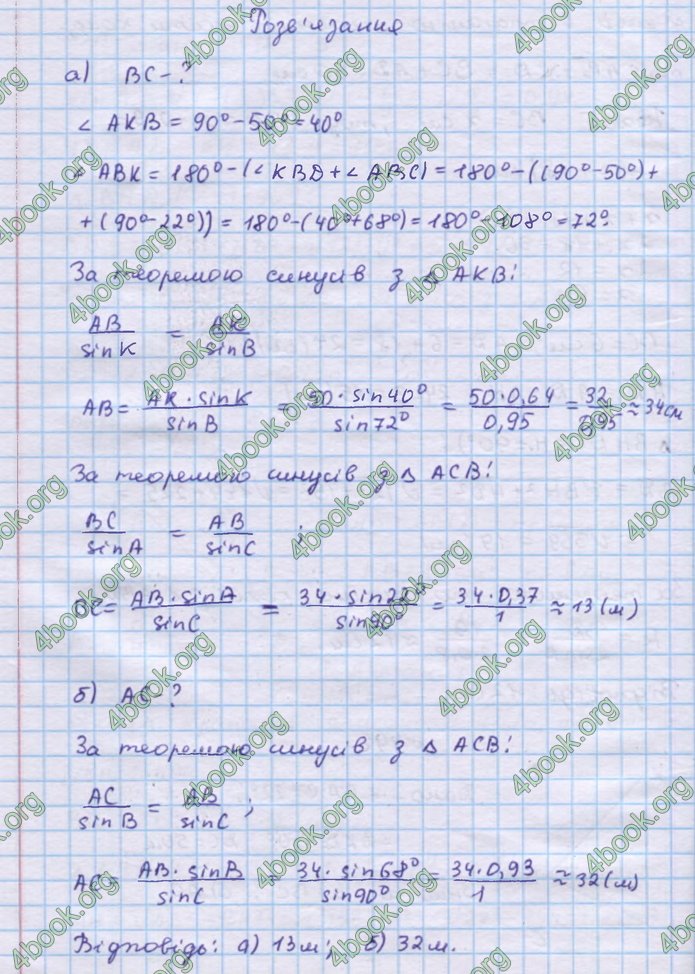 Розв'язання
а) BC - ?
∠ AKB = 90° - 50° = 40°
∠ ABK = 180° - (∠ KBD + ∠ ABC) = 180° - ((90° - 50°) +
+ (90° - 22°)) = 180° - (40° + 68°) = 180° - 108° = 72°.
За теоремою синусів з △ AKB:
AB / sin K = AK / sin B
AB = AK · sin K / sin B = 50 · sin 40° / sin 72° = 50 · 0,64 / 0,95 = 32 / 0,95 ≈ 34 см
За теоремою синусів з △ ACB:
BC / sin A = AB / sin C ;
BC = AB · sin A / sin C = 34 · sin 22° / sin 90° = 34 · 0,37 / 1 ≈ 13 (м)
б) AC - ?
За теоремою синусів з △ ACB:
AC / sin B = AB / sin C ;
AC = AB · sin B / sin C = 34 · sin 68° / sin 90° = 34 · 0,93 / 1 ≈ 32 (м)
Відповідь: а) 13 м; б) 32 м.
4book.org